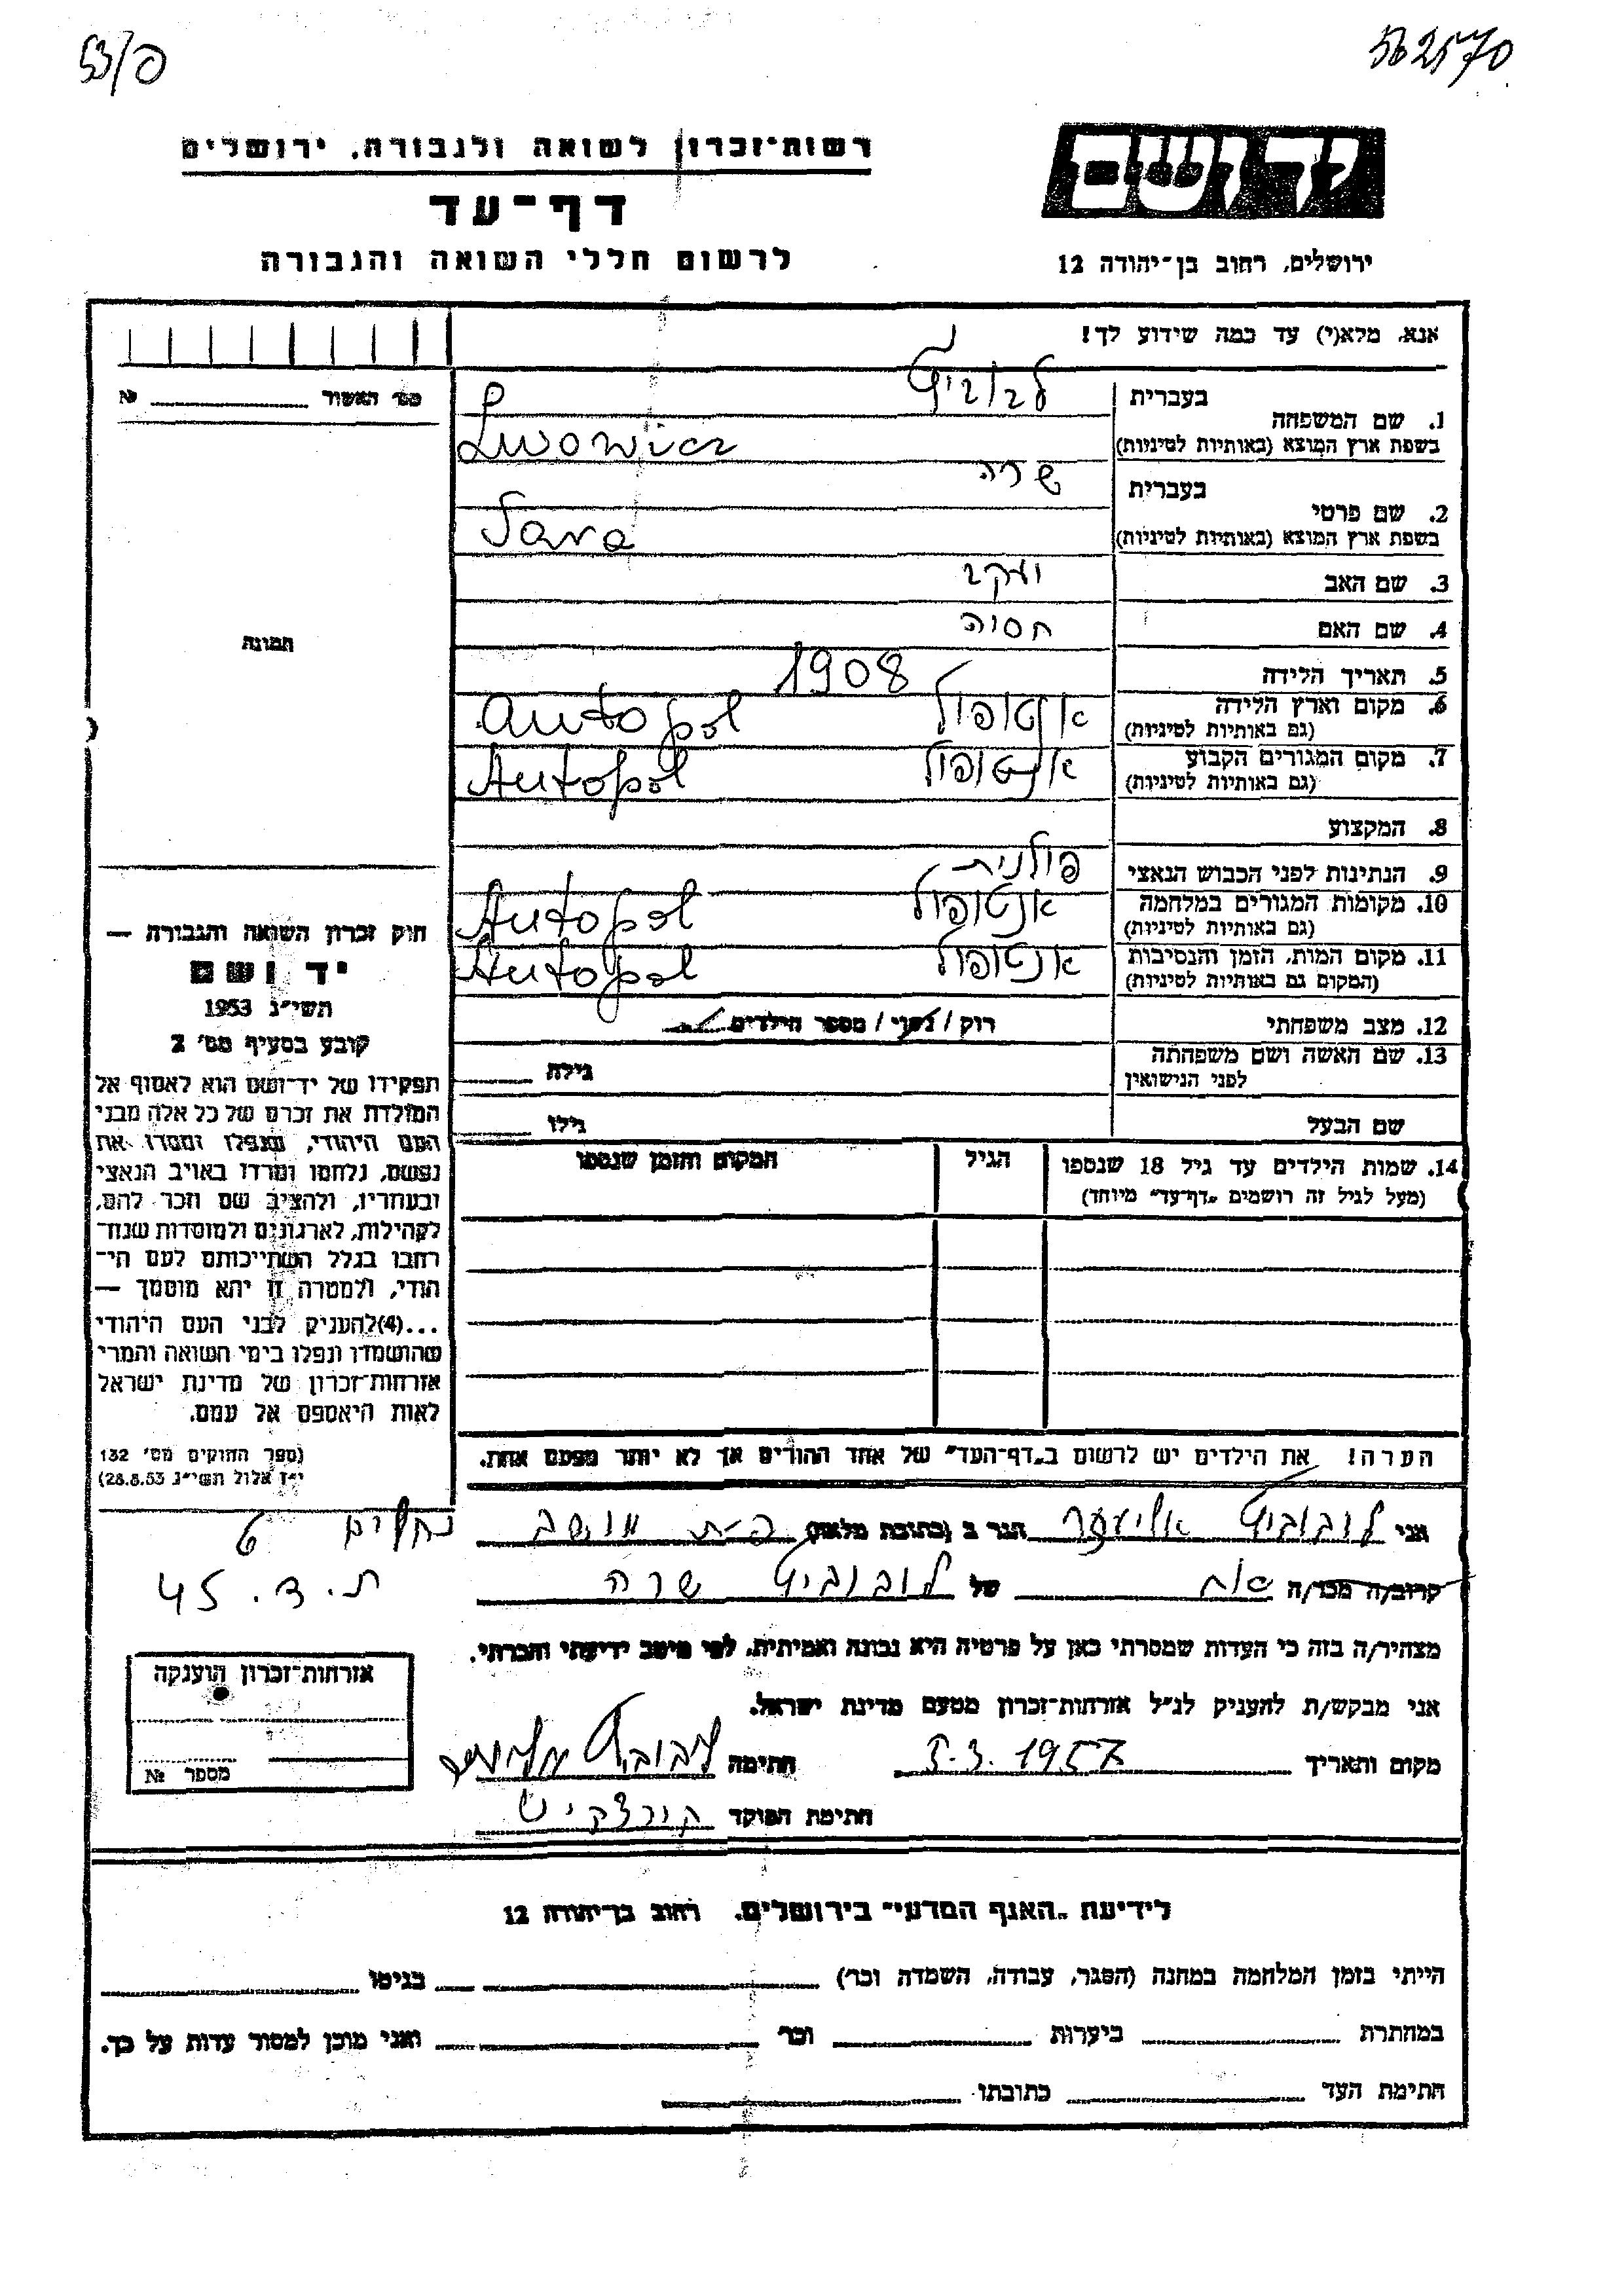 פ/53
562570
ידושם
ירושלים, רחוב בן־יהודה 12
רשות־זכרון לשואה ולגבורה, ירושלים
דף־עד
לרשום חללי השואה והגבורה
אנא, מלא(י) עד כמה שידוע לך!
1. שם המשפחה
בעברית לבוביץ
בשפת ארץ המוצא (באותיות לטיניות) Lwowicz
2. שם פרטי
בעברית שרה
בשפת ארץ המוצא (באותיות לטיניות) Sara
3. שם האב יעקב
4. שם האם חסיה
5. תאריך הלידה 1908
6. מקום וארץ הלידה אנטופול Antopol
(גם באותיות לטיניות)
7. מקום המגורים הקבוע אנטופול Antopol
(גם באותיות לטיניות)
8. המקצוע
9. הנתינות לפני הכבוש הנאצי פולנית
10. מקומות המגורים במלחמה אנטופול Antopol
(גם באותיות לטיניות)
11. מקום המות, הזמן והנסיבות אנטופול Antopol
(המקום גם באותיות לטיניות)
12. מצב משפחתי רוק / נשוי / מספר הילדים
13. שם האשה ושם משפחתה
לפני הנישואין גילה
שם הבעל גילו
14. שמות הילדים עד גיל 18 שנספו הגיל המקום והזמן שנספו
(מעל לגיל זה רושמים „דף־עד" מיוחד)
הערה! את הילדים יש לרשום ב„דף־העד" של אחד ההורים אך לא יותר מפעם אחת.
מס׳ האשור №
תמונה
חוק זכרון השואה והגבורה —
יד ושם
תשי״ג 1953
קובע בסעיף מס׳ 2
תפקידו של יד־ושם הוא לאסוף אל
המולדת את זכרם של כל אלה מבני
העם היהודי, שנפלו ומסרו את
נפשם, נלחמו ומרדו באויב הנאצי
ובעוזריו, ולהציב שם וזכר להם,
לקהילות, לארגונים ולמוסדות שנח־
רבו בגלל השתייכותם לעם הי־
הודי, ולמטרה זו יהא מוסמך —
...(4)להעניק לבני העם היהודי
שהושמדו ונפלו בימי השואה והמרי
אזרחות־זכרון של מדינת ישראל
לאות היאספם אל עמם.
(ספר החוקים מס׳ 132
י״ז אלול תשי״ג 28.8.53)
אני לובוביץ אליעזר הגר ב (כתובת מלאה) פ״ת מושב נחלים 6
ת.ד. 45
קרוב/ה מכר/ה אח של לובוביץ שרה
מצהיר/ה בזה כי העדות שמסרתי כאן על פרטיה היא נכונה ואמיתית, לפי מיטב ידיעתי והכרתי.
אני מבקש/ת להעניק לנ״ל אזרחות־זכרון מטעם מדינת ישראל.
מקום ותאריך 5.3.1957 חתימה לובוביץ אליעזר
חתימת הפוקד
אזרחות־זכרון הוענקה
מספר №
לידיעת „האגף המדעי" בירושלים, רחוב בן־יהודה 12
הייתי בזמן המלחמה במחנה (הסגר, עבודה, השמדה וכו׳) בגיטו
במחתרת ביערות וכו׳ ואני מוכן למסור עדות על כך.
חתימת העד כתובתו